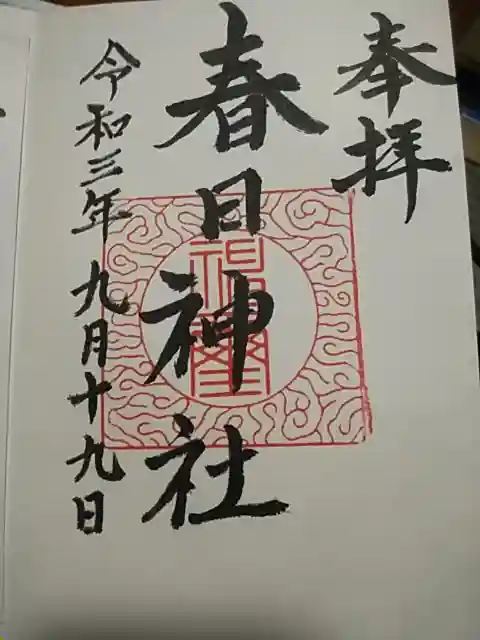 奉拝
春日神社
令和三年九月十九日